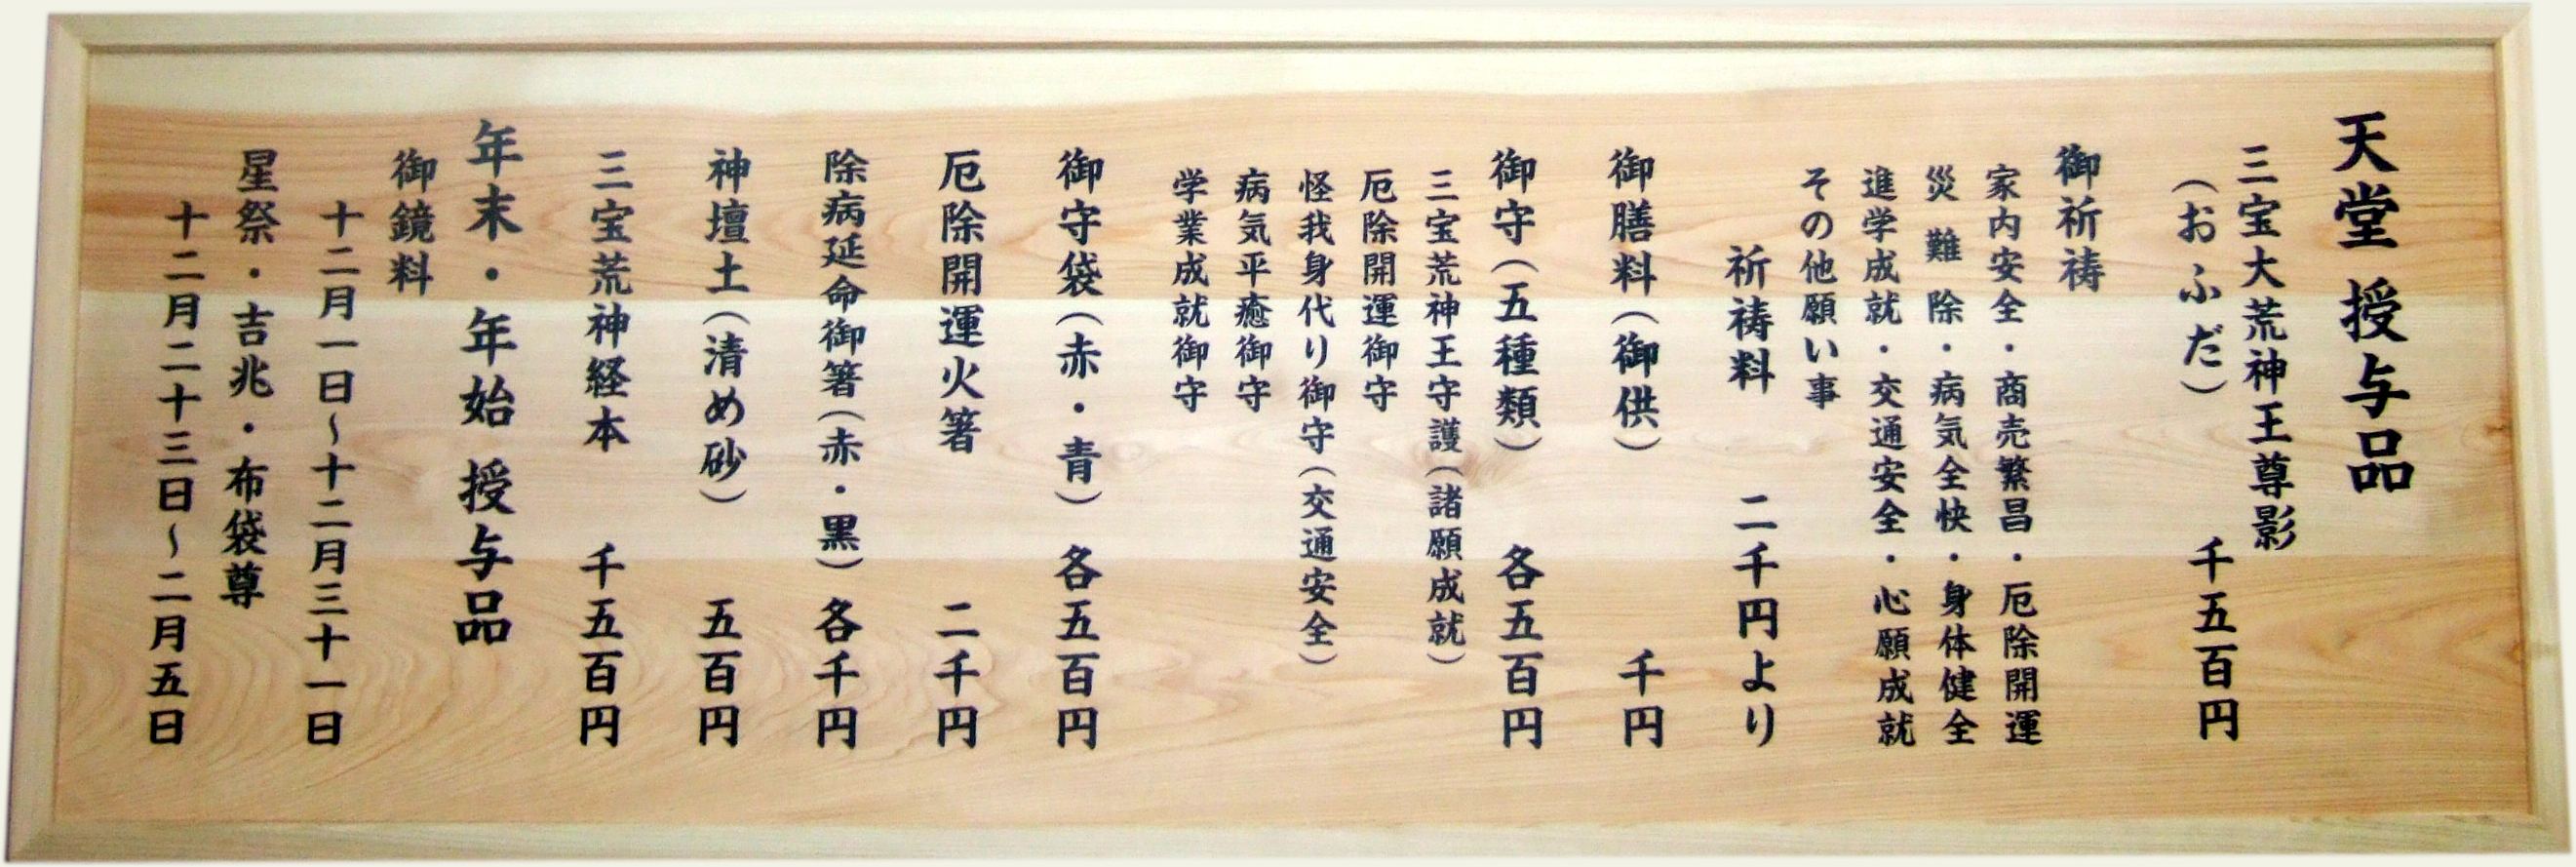 天堂 授与品
三宝大荒神王尊影
（おふだ） 千五百円
御祈祷
家内安全・商売繁昌・厄除開運
災難除・病気全快・身体健全
進学成就・交通安全・心願成就
その他願い事
祈祷料 二千円より
御膳料（御供） 千円
御守（五種類） 各五百円
三宝荒神王守護（諸願成就）
厄除開運御守
怪我身代り御守（交通安全）
病気平癒御守
学業成就御守
御守袋（赤・青） 各五百円
厄除開運火箸 二千円
除病延命御箸（赤・黒） 各千円
神壇土（清め砂） 五百円
三宝荒神経本 千五百円
年末・年始 授与品
御鏡料
十二月一日〜十二月三十一日
星祭・吉兆・布袋尊
十二月二十三日〜二月五日